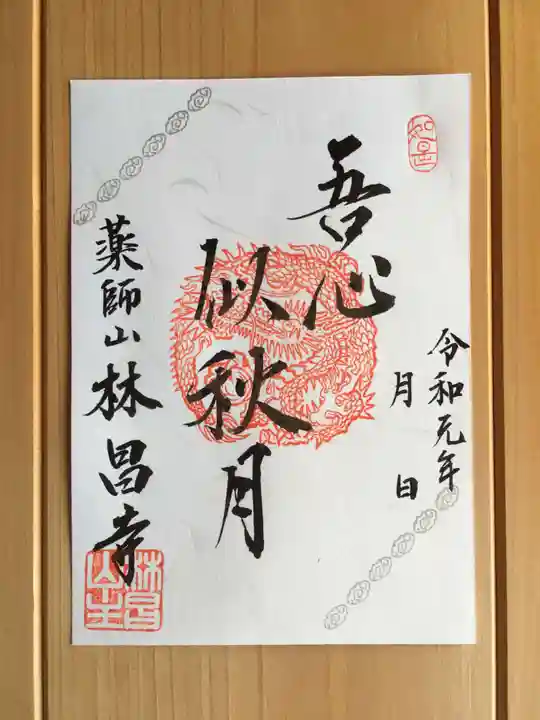 如是
吾心
似秋月
令和元年
月 日
薬師山林昌寺
林昌
山主